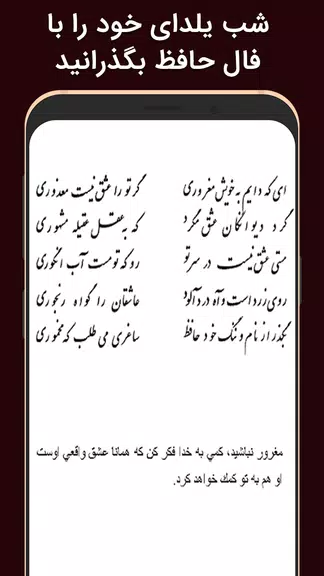 شب یلدای خود را با
فال حافظ بگذرانید
ای که دایم به خویش مغروری گر تو را عشق نیست معذوری
گرد دیوانگان عشق مگرد که به عقل عقیله مشهوری
مستی عشق نیست در سر تو رو که تو مست آب انگوری
روی زرد است و آه دردآلود عاشقان را گواه رنجوری
بگذر از نام و ننگ خود حافظ ساغر می طلب که مخموری
مغرور نباشيد، كمي به خدا فكر كن كه همانا عشق واقعي اوست
او هم به تو كمك خواهد كرد.